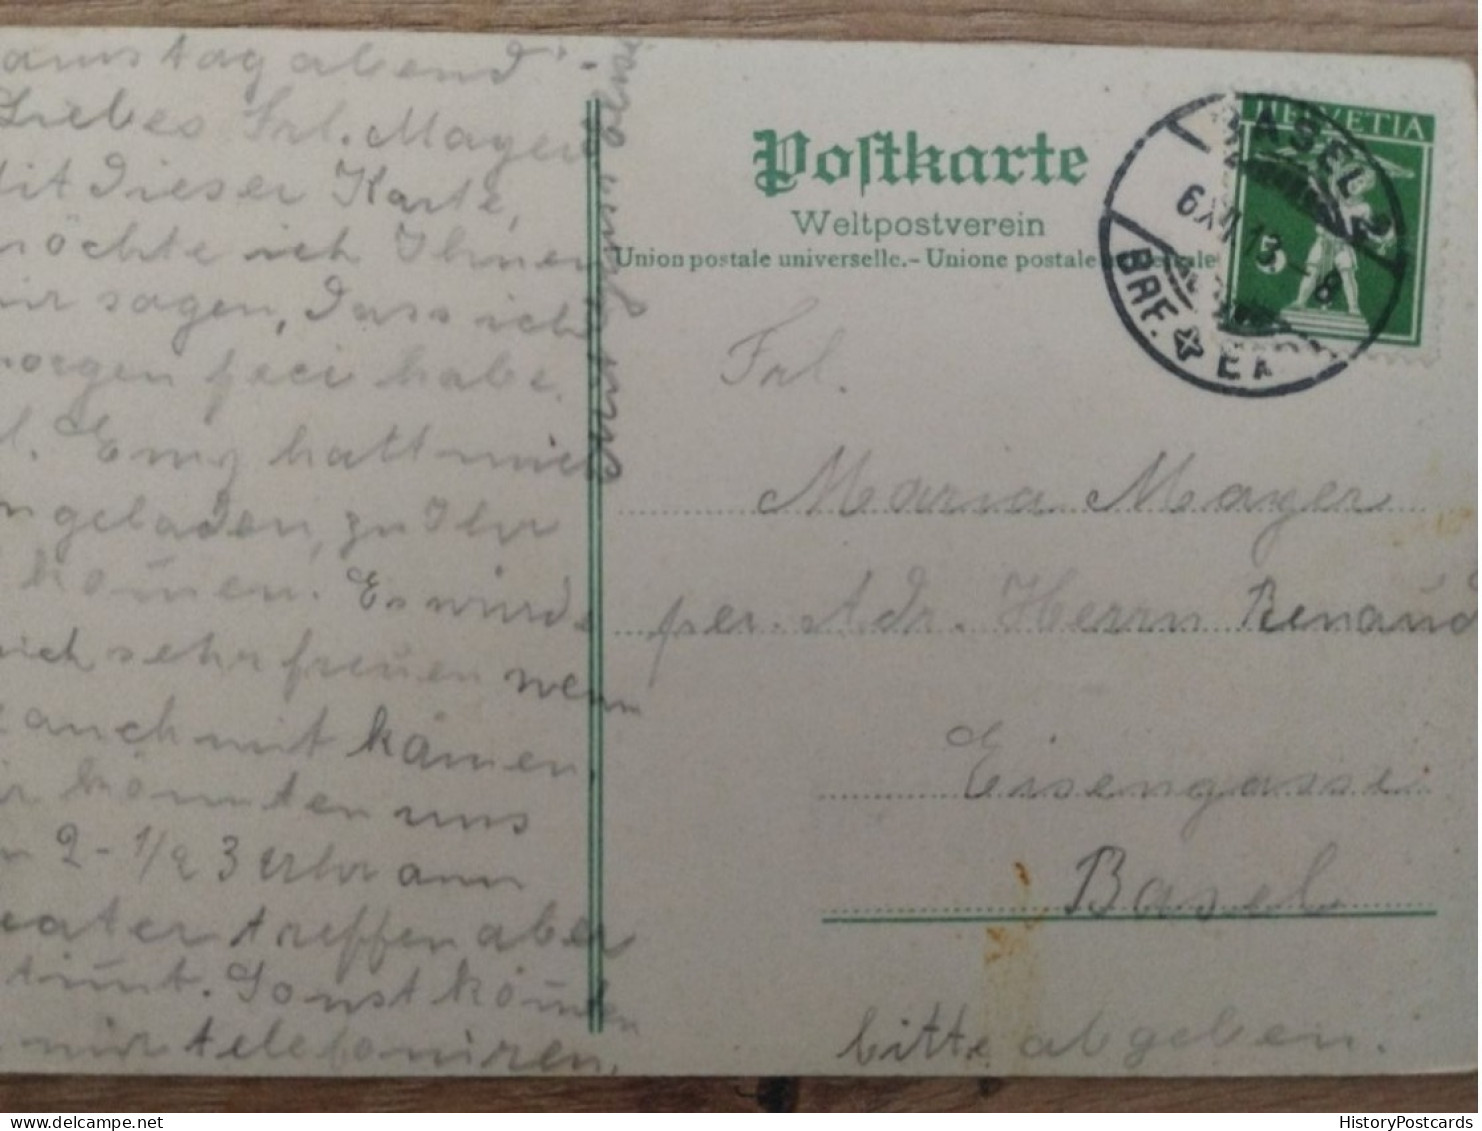 amstag abend
Liebes Frl. Mayer
it dieser Karte,
öchte ich Ihnen
ir sagen, dass ich
orgen frei habe.
l. Emy hatt mich
ngeladen, zu Ihr
kom̄en. Es würde
ich sehr freuen wenn
auch mit kämen.
ir könnten uns
n 2-1/2 3 Uhr am
eater treffen aber
tim̄t. Sonst könnten
mir telefoniren.
Postkarte
Weltpostverein
Union postale universelle.- Unione postale
HELVETIA
5
BASEL 2
6 XII 13 - 8
BRF.
Frl.
Maria Mayer
per. Adr. Herrn Renaud
Eisengasse
Basel
bitte abgeben.
www.delcampe.net
HistoryPostcards